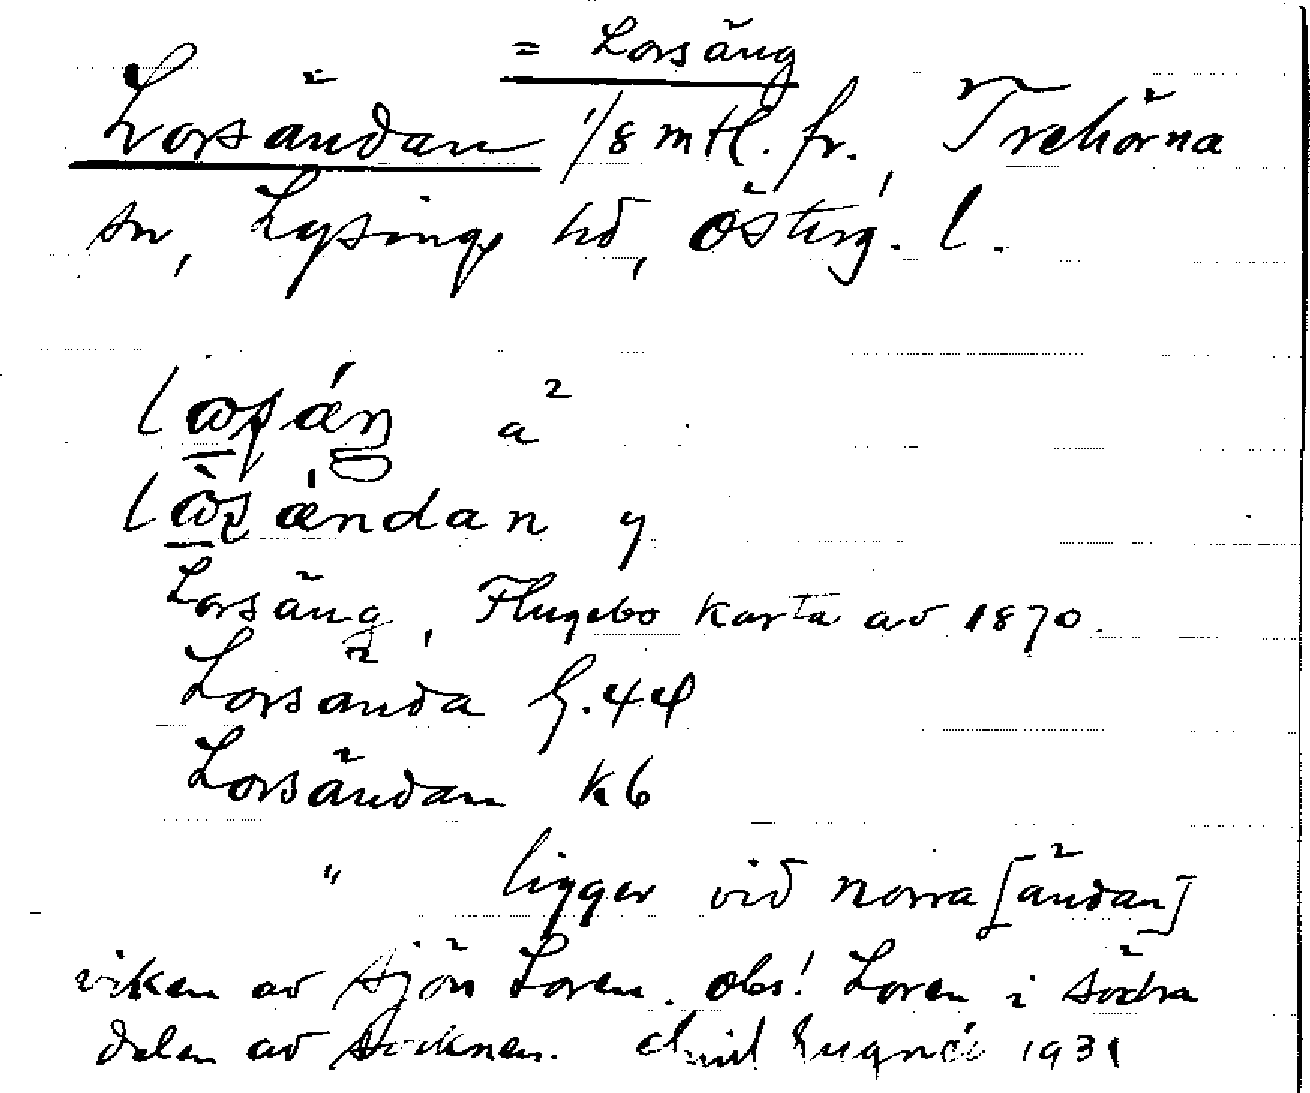 = Lorsäng
Lorsändan 1/8 mtl. fr. Trehörna
sn, Lysings hd, Österg. l.
a²
y
Lorsäng, Flugebo karta av 1870.
Lorsända G. 44
Lorsändan k 6
" ligger vid norra [ändan]
viken av sjön Loren. obs! Loren i södra
delen av socknen. 1931